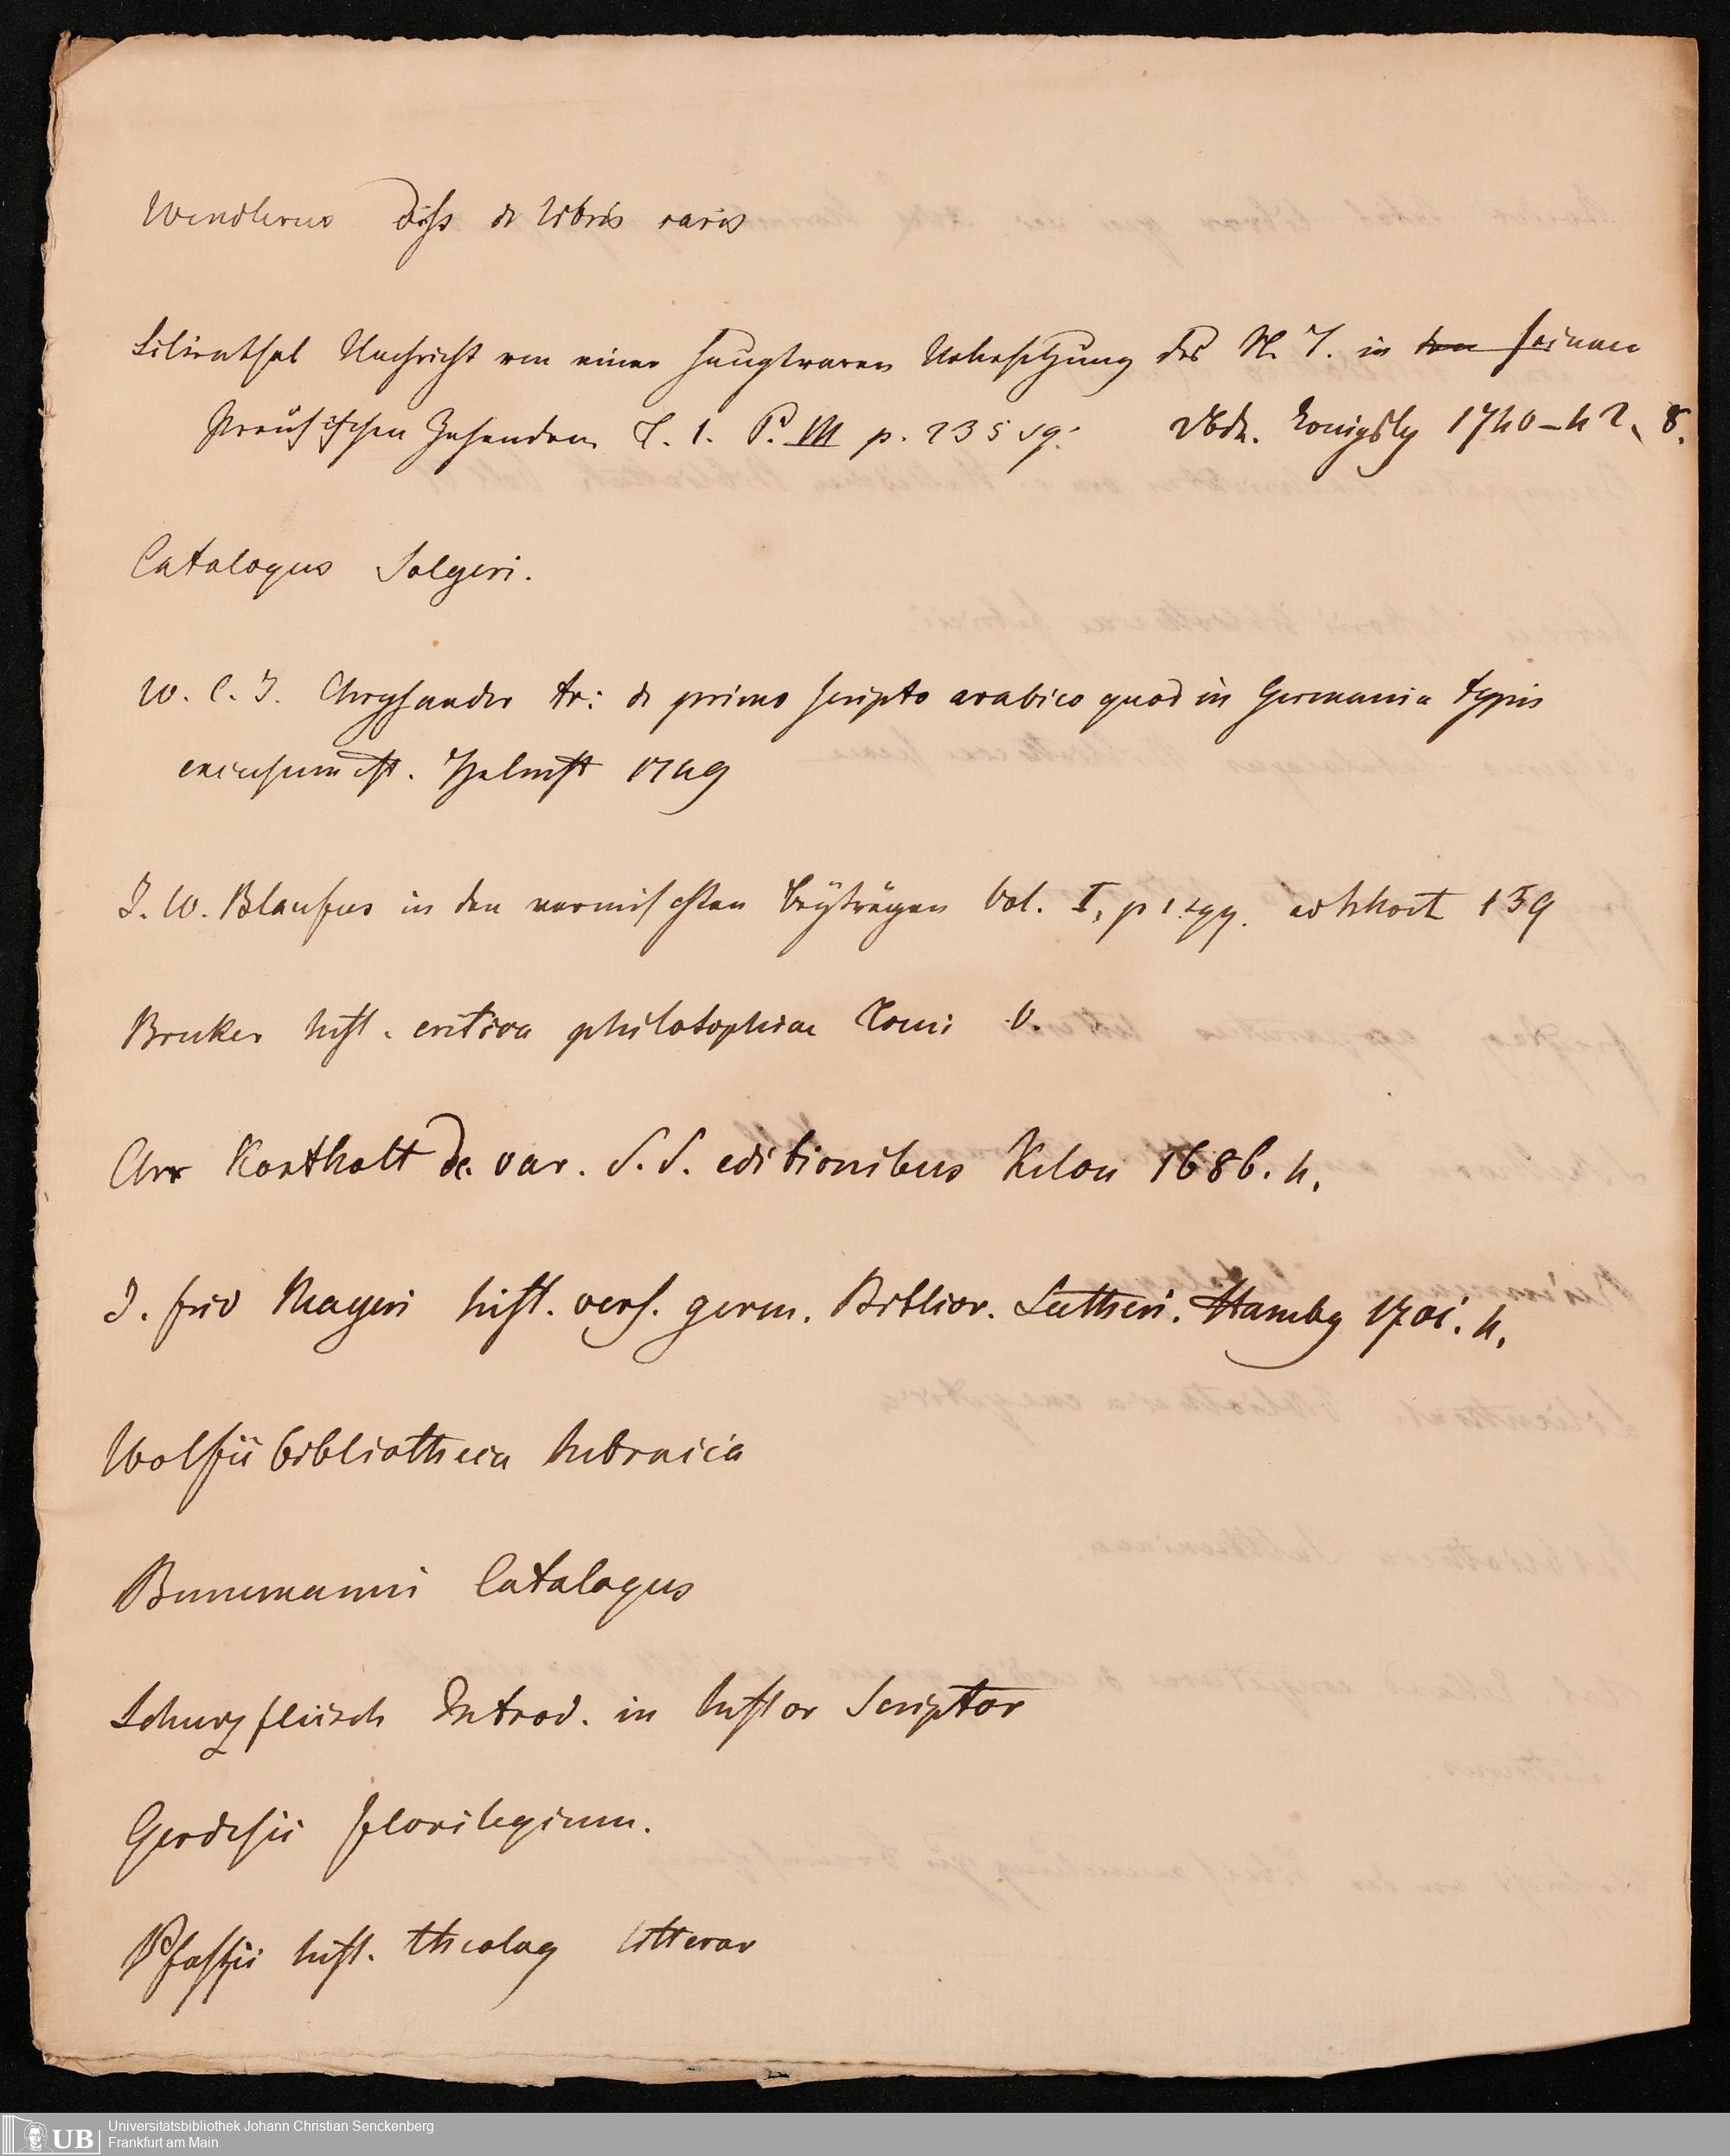 Wendlerus Diss de libris raris
Lilienthal Nachricht von einer Uebersetzung des N. T. in den seinen
Preußischen Zehenden T. 1. P. VII p. 235 sq. Königsbg 1740–42. 8.
Catalogus Solgeri.
W. C. J. Chrysander tr: de primo scripto arabico quod in Germania typis
excusum est. Helmst 1749
J. W. Blaufus in den vermischten Beyträgen Vol. I, p 1. sqq. 159
Bruker hist. critica philosophiae Tomi V.
Chr Kortholt de var. S. S. editionibus Kilon 1686. 4.
J. frid Mayeri hist. vers. germ. Biblior. Lutheri. Hambg 1701. 4.
Wolfii bibliotheca hebraica
Bunemanni Catalogus
Schurzfleisch Introd. in histor Scriptor
Gerdesii florilegium.
Pfaffii hist. theolog litterar
UB Universitätsbibliothek Johann Christian Senckenberg
Frankfurt am Main